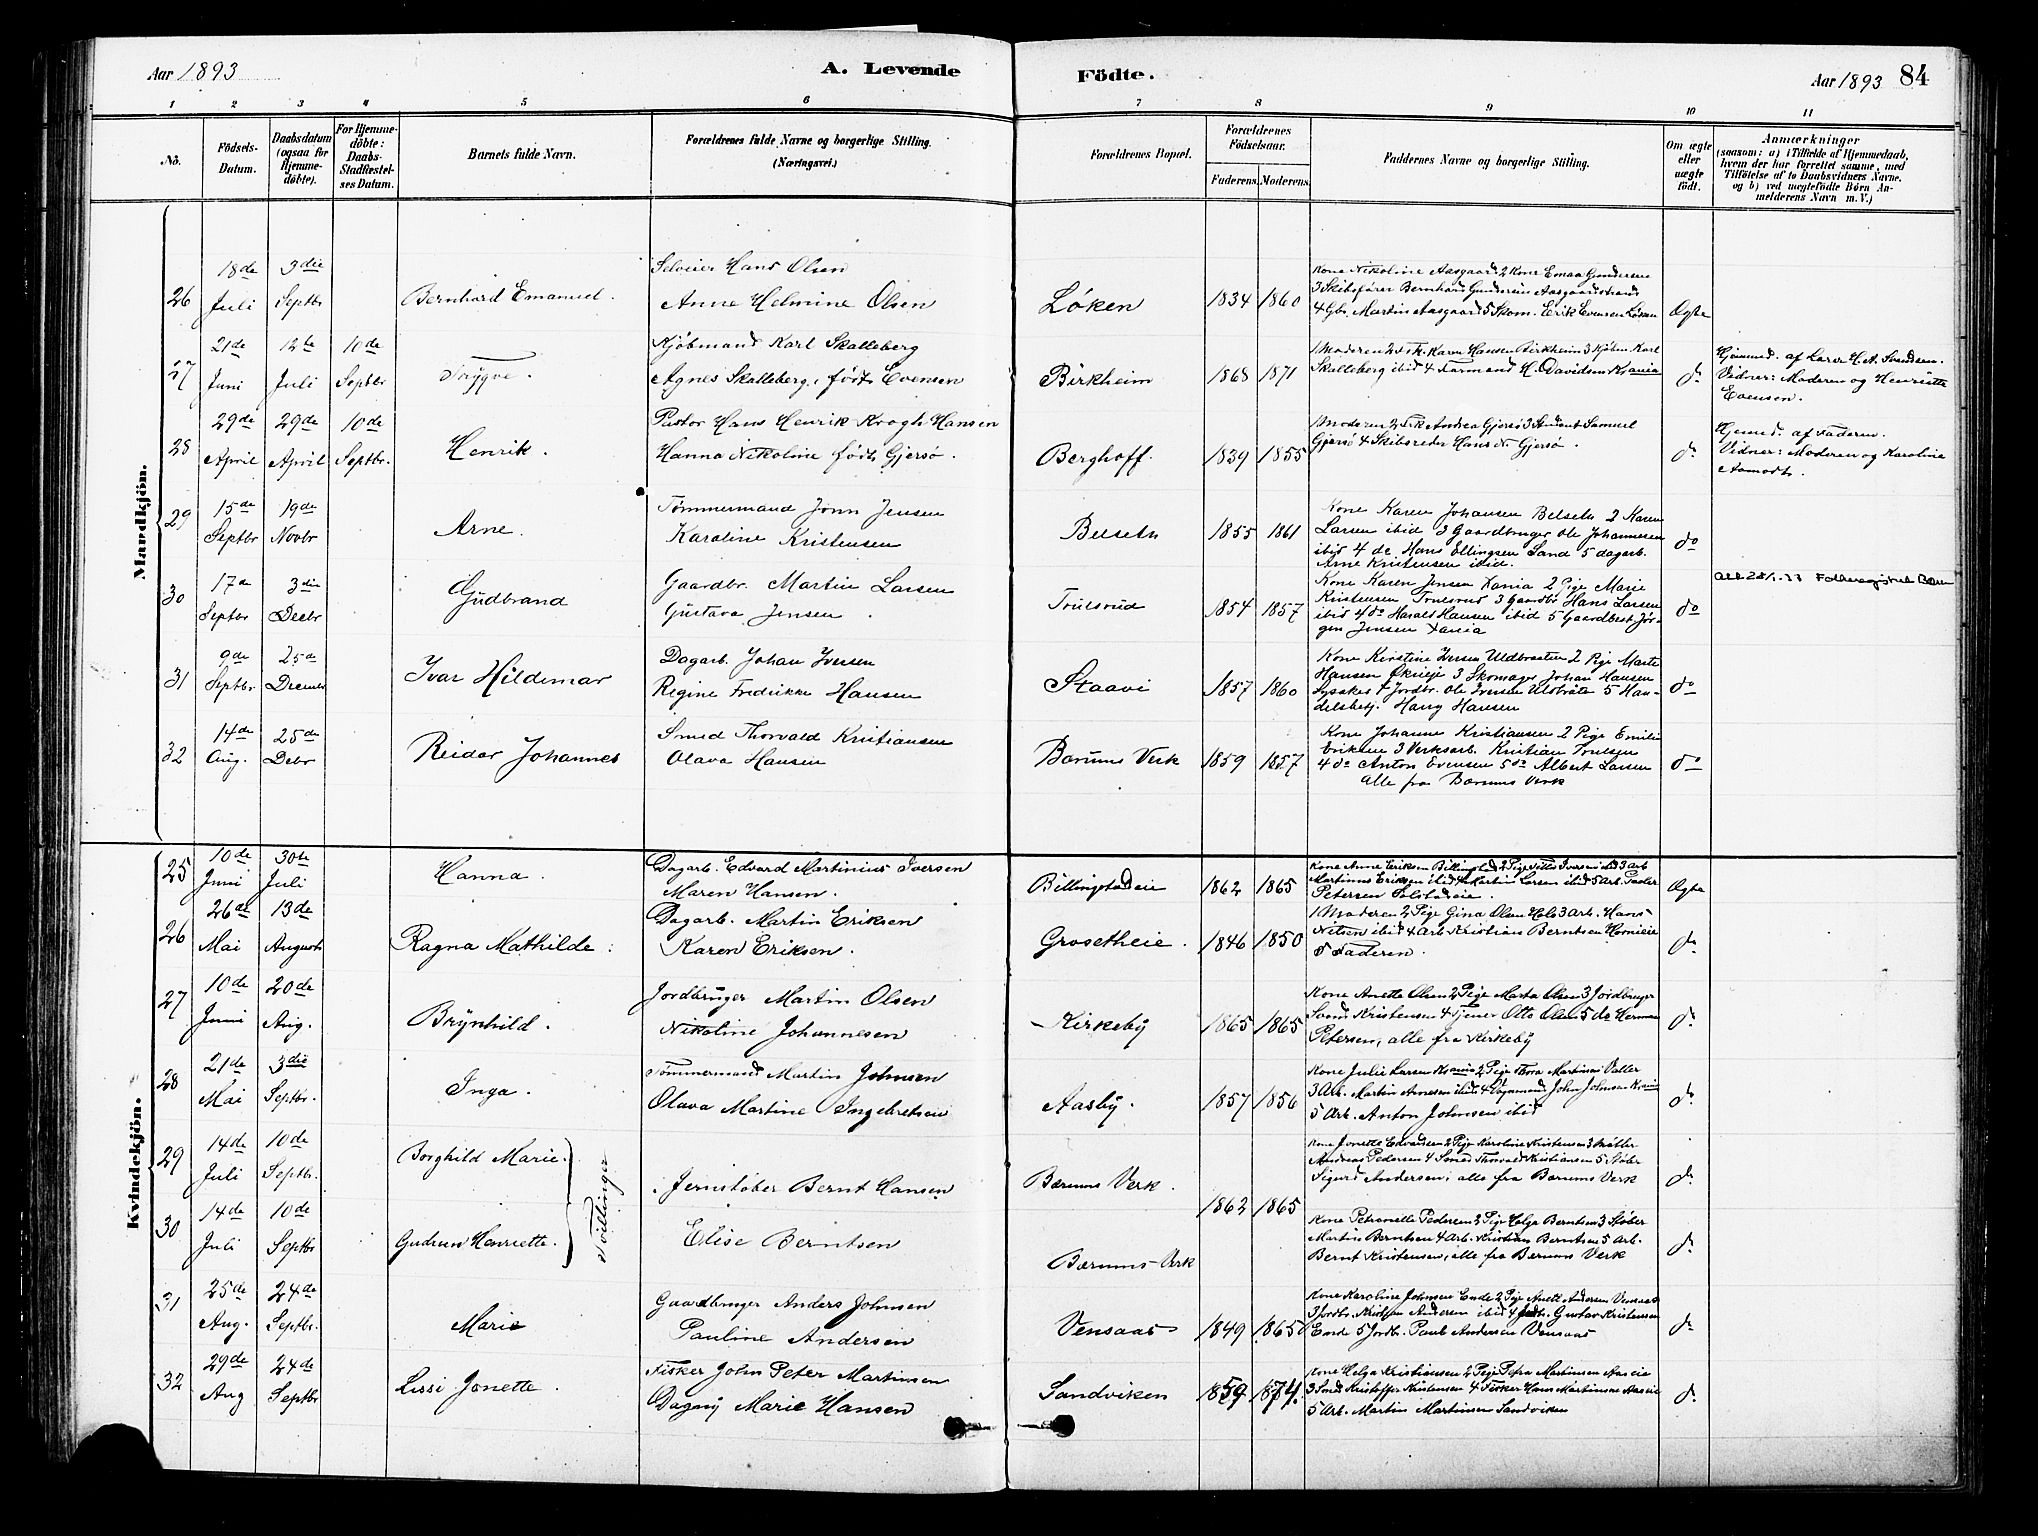 Aar 1893
A. Levende
Födte.
Aar 1893 84
1 2 3 4 5 6 7 8 9 10 11
No.
Födsels-
Datum.
Daabsdatum
(ogsaa for
Hjemme-
döbte).
For Hjemme-
döbte:
Daabs-
Stadfæstel-
ses Datum.
Barnets fulde Navn.
Forældrenes fulde Navne og borgerlige Stilling.
(Næringsvei.)
Forældrenes Bopæl.
Forældrenes
Födselsaar.
Faderens. Moderens.
Faddernes Navne og borgerlige Stilling.
Om ægte
eller
uægte
födt.
Anmærkninger
(saasom: a) i Tilfælde af Hjemmedaab,
hvem der har forrettet samme, med
Tilföielse af to Daabsvidners Navne,
og b) ved uægtefödte Börn An-
melderens Navn m. V.)
Mandkjön.
26
18de
Juli
3die
Septbr
Bernhard Emanuel.
Selveier Hans Olsen
Anne Helmine Olsen
Løken
1834 1860
Kone Nikoline Aasgaard 2 Kone Emma Gundersen
3 Skibsfører Bernhard Gundersen Aasgaardstrand
4 Gbr. Martin Aasgaard 5 Skom. Erik Evensen Løken
Ægte
27
21de
Juni
12te
Juli
10de
Septbr
Trygve.
Kjøbmand Karl Skalleberg
Agnes Skalleberg, født Evensen
Birkheim
1868 1871
1 Moderen 2 Frk. Karen Hansen Birkheim 3 Kjøbm. Karl
Skalleberg ibid 4 Formand H. Davidsen Krania
do
Hjemmed. af Lærer H. A. Svendsen.
Vidner: Moderen og Henriette
Evensen.
28
29de
April
29de
April
10de
Septbr.
Henrik.
Pastor Hans Henrik Krogh Hansen
Hanna Nikoline født Gjersø.
Berghoff.
1839 1855
1 Moderen 2 Frk Andrea Gjersø 3 Student Samuel
Gjersø 4 Skibsreder Hans N. Gjersø.
do
Hjemmed. af Faderen.
Vidner: Moderen og Karoline
Aamodt.
29
15de
Septbr
19de
Novbr
Arne.
Tømmermand Jonn Jensen
Karoline Kristensen
Belseth
1855 1861
Kone Karen Johansen Belseth 2 Karen
Larsen ibid 3 Gaardbruger Ole Johannesen
ibid 4 do. Hans Ellingsen Sand 5 dagarb.
Arne Kristensen ibid.
do
30
17de
Septbr
3die
Decbr
Gudbrand
Gaardbr. Martin Larsen
Gustava Jensen.
Trulsrud
1854 1857
Kone Karen Jensen Xania 2 Pige Marie
Kristensen Trulsrud 3 Gaardbr Hans Larsen
ibid 4 do Harald Hansen ibid 5 Gaardbest Jør-
gen Jensen Xania
do
31
9de
Septbr
25de
Decmbr
Ivar Hildemar
Dagarb. Johan Iversen
Regine Fredrikke Hansen
Staavi
1857 1860
Kone Kirstine Iversen Uldbraaten 2 Pige Marte
Hansen Økrieje 3 Skomager Johan Hansen
Lysaker 4 Jordbr. Ole Iversen Ulsbråte 5 Han-
delsbetj. Harry Hansen
do
32
14de
Aug.
25de
Debr
Reidar Johannes
Smed Thorvald Kristiansen
Olava Hansen
Bærums Verk
1859 1857
Kone Johanne Kristiansen 2 Pige Emilie
Eriksen 3 Verksarb. Kristian Trulsen
4 do Anton Evensen 5 do Albert Larsen
alle fra Bærums Verk
do
Kvindekjön.
25
10de
Juni
30te
Juli
Hanna.
Dagarb. Edvard Martinius Iversen
Maren Hansen.
Billingstadeie
1862 1865
Kone Anne Eriksen Billingstad 2 Pige Iversen ibid 3 arb
Martinus Eriksen ibid 4 Martin Larsen ibid 5 Arb. Peder
Petersen
Ægte
26
26de
Mai
13de
August
Ragna Mathilde.
Dagarb. Martin Eriksen
Karen Eriksen.
Grosetheie.
1846 1850
1 Moderen 2 Pige Gina Olsen Hols 3 Arb. Hans
Nilsen ibid 4 Arb Kristian Berntsen Hornieie
5 Faderen.
do
27
10de
Juni
20de
Aug.
Brynhild.
Jordbruger Martin Olsen
Nikoline Johannesen
Kirkeby
1865 1865
Kone Anette Olsen 2 Pige Marta Olsen 3 Jordbruger
Svend Kristensen 4 Tjener Otto Olsen 5 do Herman
Petersen, alle fra Kirkeby
do
28
21de
Mai
3die
Septbr.
Inga.
Tømmermand Martin Johnsen
Olava Martine Ingebretsen
Aasby.
1857 1856
Kone Julie Larsen Krania 2 Pige Thora Martinsen Valler
3 Arb. Martin Arnesen ibid 4 Vognmand John Johnsen Krania
5 Arb. Anton Johnsen ibid
do
29
14de
Juli
10de
Septbr.
Borghild Marie.
Tvillinger
Jernstøber Bernt Hansen
Elise Berntsen
Bærums Verk.
1862 1865
Kone Jonette Edvardsen 2 Pige Karoline Kristensen 3 Møller
Andreas Pedersen 4 Smed Thorvald Kristiansen 5 Støber
Sigurd Andersen, alle fra Bærums Verk
do
30
14de
Juli
10de
Septbr
Gudrun Henriette.
Bærums-Verk
Kone Petronelle Pedersen 2 Pige Helga Berntsen 3 Støber
Martin Berntsen 4 Arb. Kristian Berntsen 5 Arb.
Bernt Kristensen, alle fra Bærums Verk
do
31
25de
Aug.
24de
Septbr.
Marie
Gaardbruger Anders Johnsen
Pauline Andersen
Vensaas
1849 1865
Kone Karoline Johnsen Ende 2 Pige Anett Andersen Vensaas
3 Jordbr. Kristian Andersen ibid 4 Jordbr. Gustav Kristensen
Ende 5 Jordbr. Paul Andersen Vensaas
do
32
29de
Aug
24de
Septbr
Lissi Jonette.
Fisker John Peter Martinsen
Dagny Marie Hansen
Sandviken
1859 1874.
Kone Helga Kristiansen 2 Pige Petra Martinsen Aaseie
3 Smed Kristoffer Kristensen 4 Fisker Hans Martinsen Aaseie
5 Arb. Martin Martinsen Sandviken
do